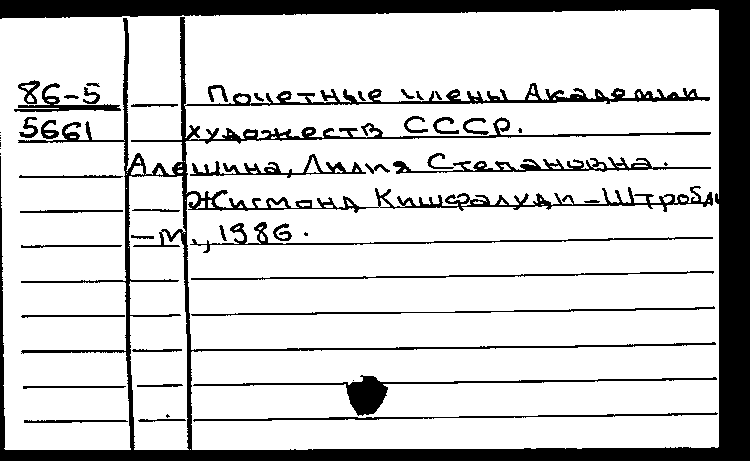 86-5 Почетные члены Академии
5661 художеств СССР.
Алешина, Лилия Степановна.
Жигмонд Кишфалуди-Штробл
-М., 1986.